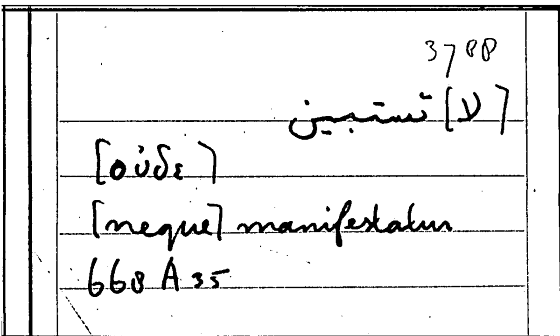 3788
[لا] تستبين
[οὐδὲ]
[neque] manifestatur
668 A 35